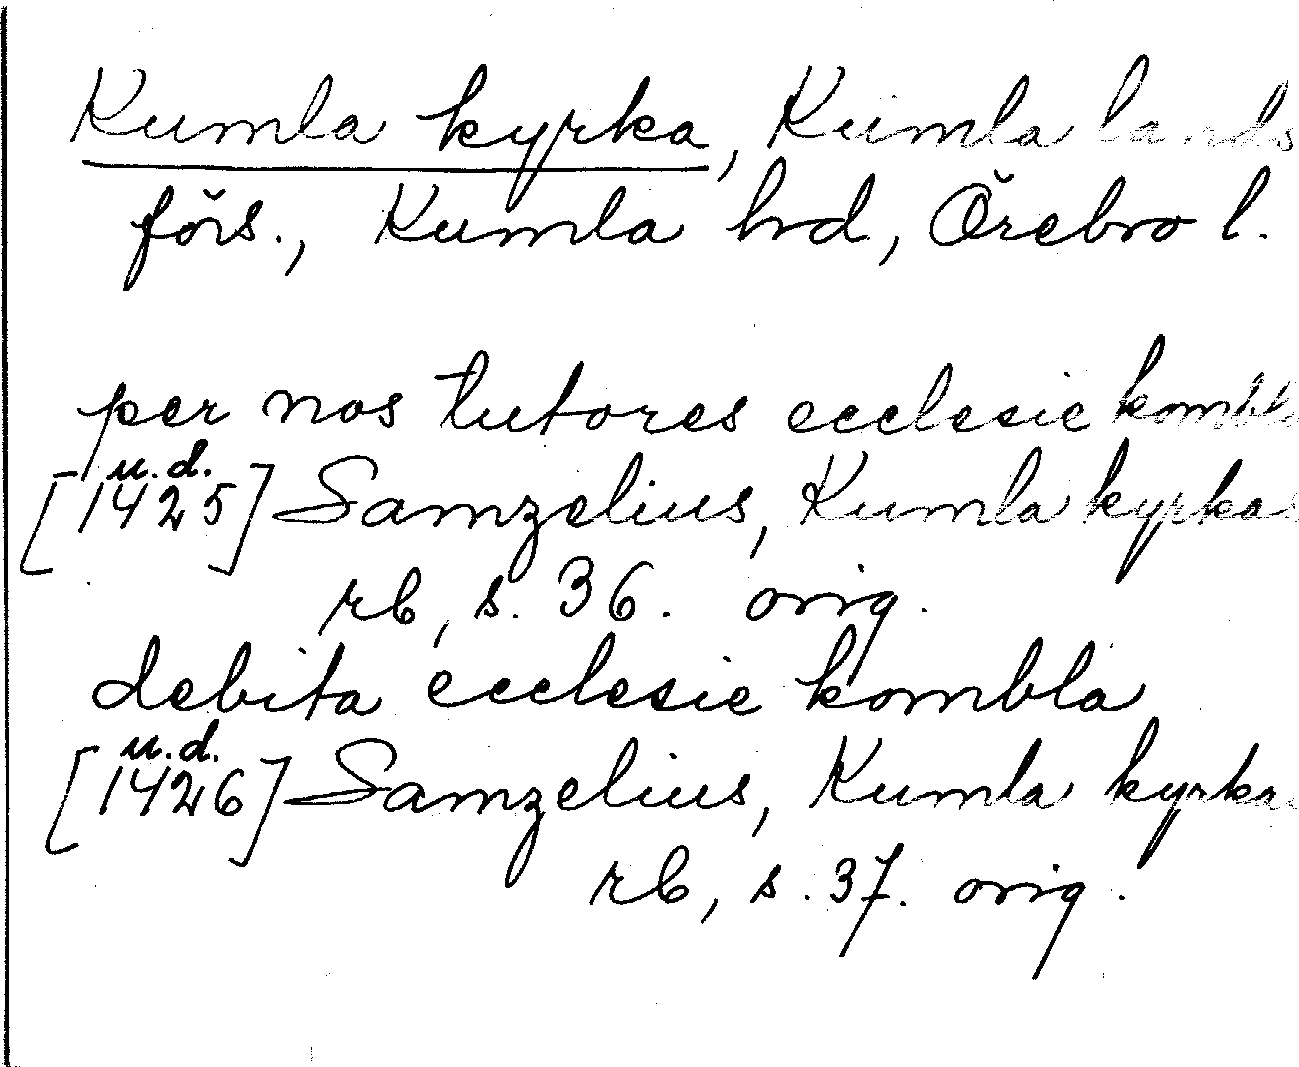 Kumla kyrka, Kumla lands
förs., Kumla hd, Örebro l.
per nos tutores ecclesie kombla
u.d.
[1425] Samzelius, Kumla kyrkas
rb, s. 36. orig.
debita ecclesie kombla
u.d.
[1426] Samzelius, Kumla kyrkas
rb, s. 37. orig.